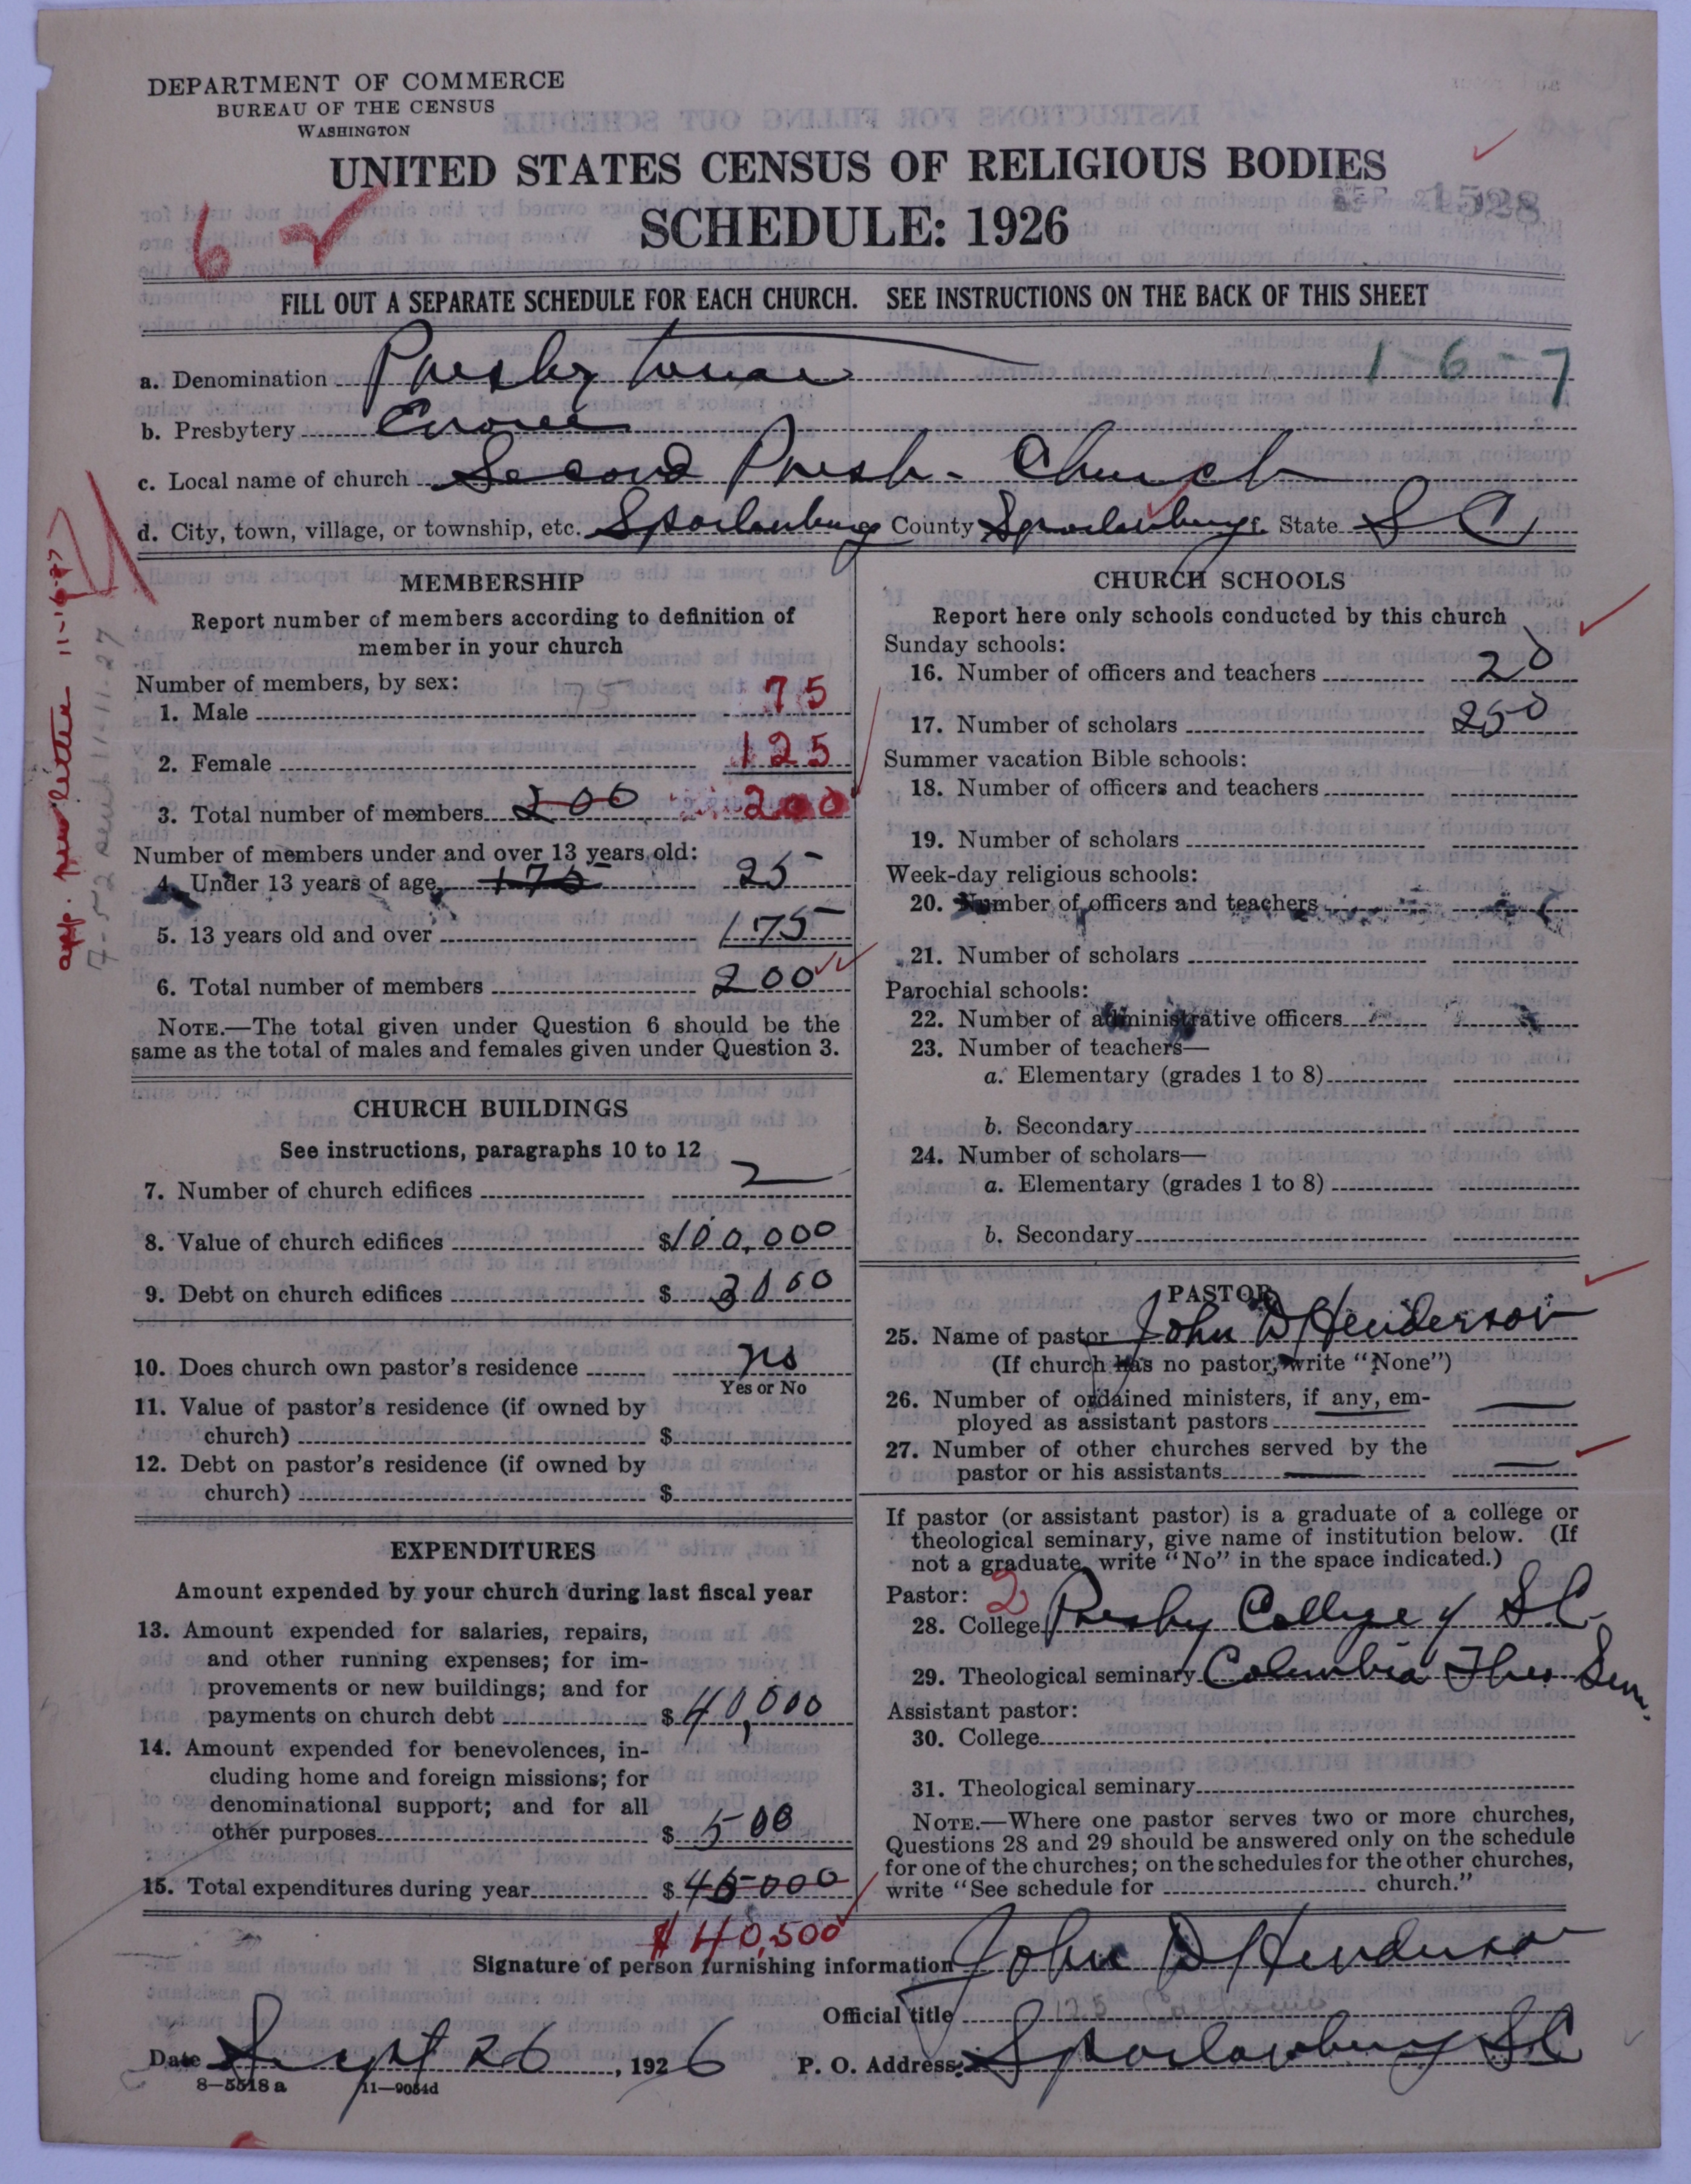 DEPARTMENT OF COMMERCE
BUREAU OF THE CENSUS
WASHINGTON
UNITED STATES CENSUS OF RELIGIOUS BODIES
SCHEDULE: 1926
1528
6
FILL OUT A SEPARATE SCHEDULE FOR EACH CHURCH. SEE INSTRUCTIONS ON THE BACK OF THIS SHEET
a. Denomination Presbyterian 1-6-7
b. Presbytery Enoree
c. Local name of church Second Presb. Church
d. City, town, village, or township, etc. Spartanburg County Spartanburg State S C
app. new letter 11-16-27
MEMBERSHIP
Report number of members according to definition of
member in your church
Number of members, by sex:
1. Male 75 75
2. Female 125
3. Total number of members 200 200
Number of members under and over 13 years old:
4. Under 13 years of age 175 25
5. 13 years old and over 175
6. Total number of members 200
NOTE.—The total given under Question 6 should be the
same as the total of males and females given under Question 3.
CHURCH BUILDINGS
See instructions, paragraphs 10 to 12
7. Number of church edifices 2
8. Value of church edifices $100,000
9. Debt on church edifices $
10. Does church own pastor's residence no
Yes or No
11. Value of pastor's residence (if owned by
church) $
12. Debt on pastor's residence (if owned by
church) $
EXPENDITURES
Amount expended by your church during last fiscal year
13. Amount expended for salaries, repairs,
and other running expenses; for im-
provements or new buildings; and for
payments on church debt $40,000
14. Amount expended for benevolences, in-
cluding home and foreign missions; for
denominational support; and for all
other purposes $500
15. Total expenditures during year $45000
$40,500
CHURCH SCHOOLS
Report here only schools conducted by this church
Sunday schools:
16. Number of officers and teachers 20
17. Number of scholars 250
Summer vacation Bible schools:
18. Number of officers and teachers
19. Number of scholars
Week-day religious schools:
20. Number of officers and teachers
21. Number of scholars
Parochial schools:
22. Number of administrative officers
23. Number of teachers—
a. Elementary (grades 1 to 8)
b. Secondary
24. Number of scholars—
a. Elementary (grades 1 to 8)
b. Secondary
PASTOR
25. Name of pastor John D Henderson
(If church has no pastor, write "None")
26. Number of ordained ministers, if any, em-
ployed as assistant pastors
27. Number of other churches served by the
pastor or his assistants
If pastor (or assistant pastor) is a graduate of a college or
theological seminary, give name of institution below. (If
not a graduate, write "No" in the space indicated.)
Pastor: 2
28. College Presby College of S.C.
29. Theological seminary Columbia Theo Sem.
Assistant pastor:
30. College
31. Theological seminary
NOTE.—Where one pastor serves two or more churches,
Questions 28 and 29 should be answered only on the schedule
for one of the churches; on the schedules for the other churches,
write "See schedule for church."
Signature of person furnishing information John D Henderson
Official title 125 Calhoun
Date Sept 26, 1926 P. O. Address Spartanburg S.C
8—5518 a 11—9054d